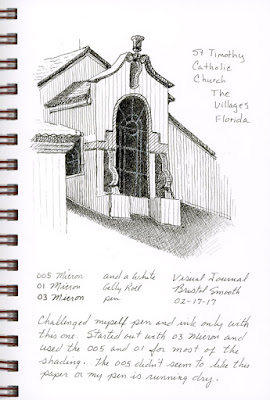 St Timothy
Catholic
Church
The
Villages
Florida
005 Micron and a White Visual Journal
01 Micron Gelly Roll Bristol Smooth
03 Micron pen 02-17-17
Challenged myself pen and ink only with
this one. Started out with 03 Micron and
used the 005 and 01 for most of the
shading. The 005 didn't seem to like this
paper or my pen is running dry.